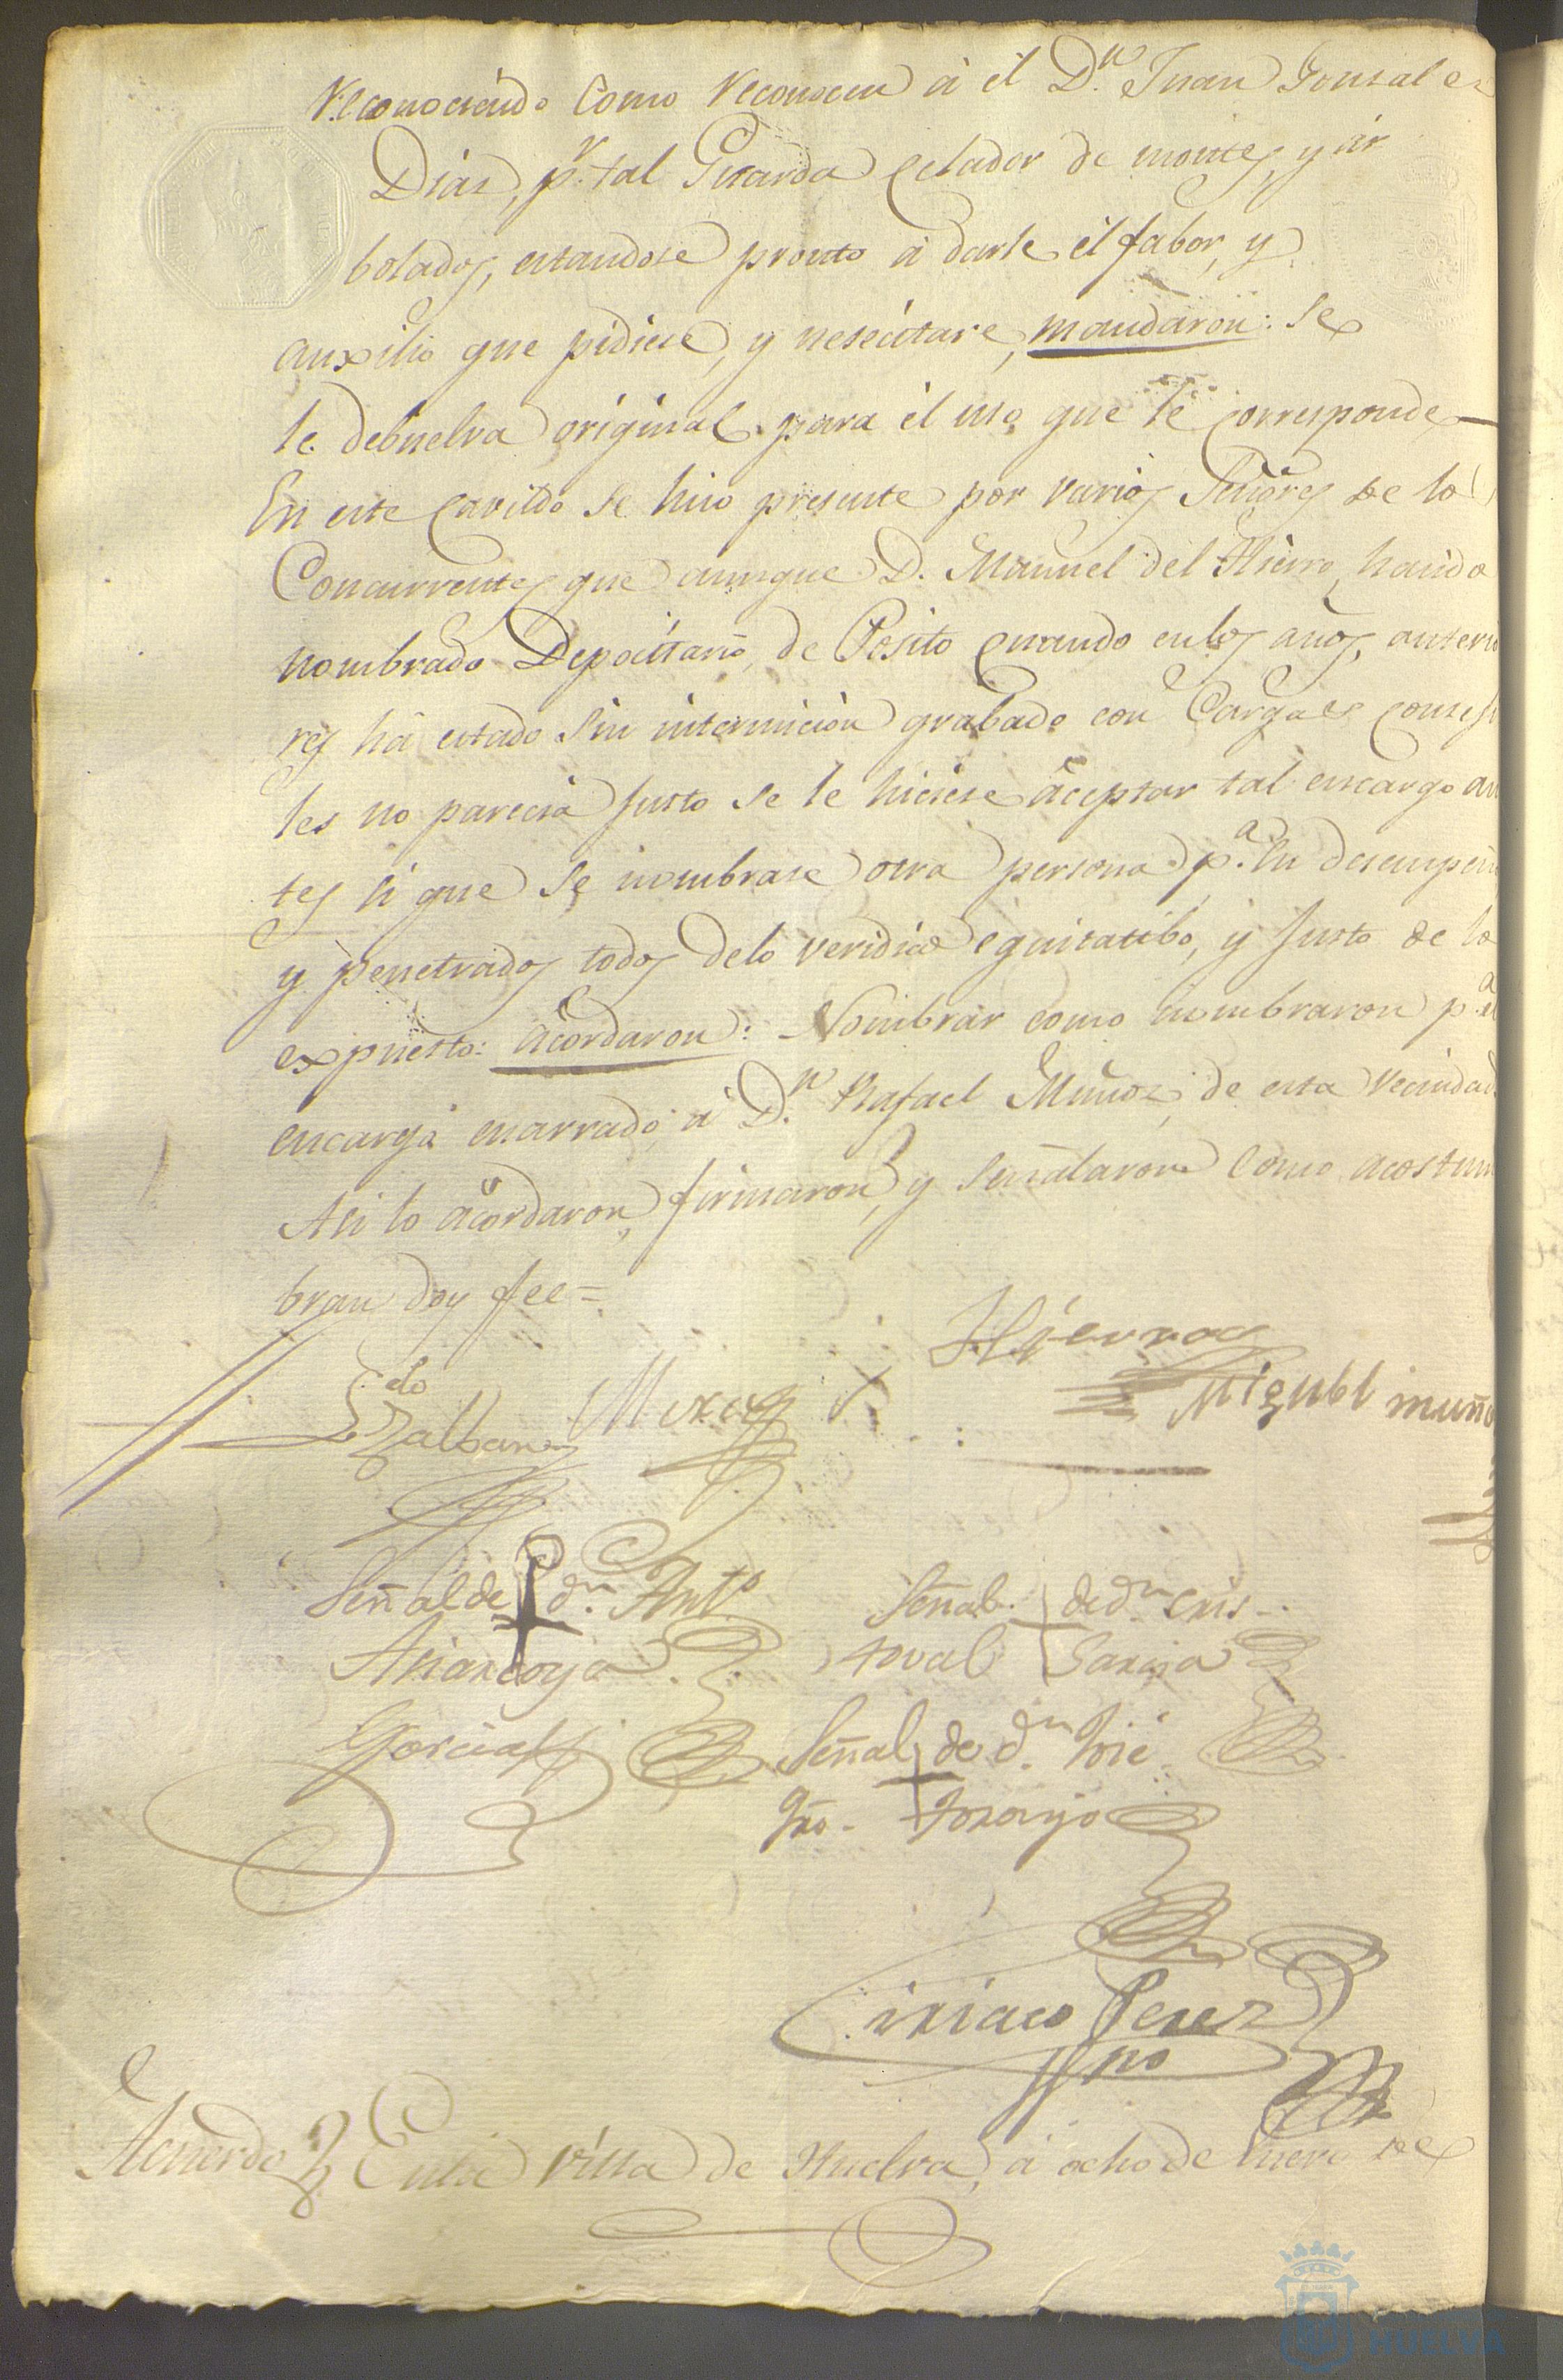 Reconociendo como reconocen á él D.n Juan Gonsales
Dias, p.r tal Guarda celador de montes, y ar
bolados, estandose pronto á darle él fabor, y
auxilio que pidiese, y nesecitare, mandaron: Se
le debuelva original para él uso que le corresponde
En este Cavildo se hiso presente por varios Señores de lo
Concurrentes que aunque D. Manuel del Hierro, haido
nombrado Depocitario, de Posito quando en los años, anterio
res há estado sin intermicion grabado con Cargas consegi
les no parecia justo se le hiciese áceptar tal encargo an
tes si que se nombrase otra persona p.a su desempeño
y penetrados todos delo veridico equitatibo, y justo de lo
expuesto: ácordaron: Nombrar como nombraron p.a el
encargo enarrado, á D.n Rafael Muños, de esta Vecindad
Asi lo ácordaron, firmaron, y señalaron como acostum
bran doy fee=
Hierro
Lzdo
Zalbans
Miguel muño
Señal de d.n Ant.o
Garcia
Señal de d.n Cris-
toval Garcia
Señal de d.n José
Jno. Toranjo
Ciriaco Perez
Sno
Acuerdo En la villa de Huelva, á ocho de Enero de
HUELVA